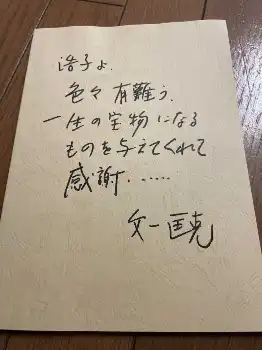 浩子よ、
色々有難う、
一生の宝物になる
ものを与えてくれて
感謝……
文一 匡克